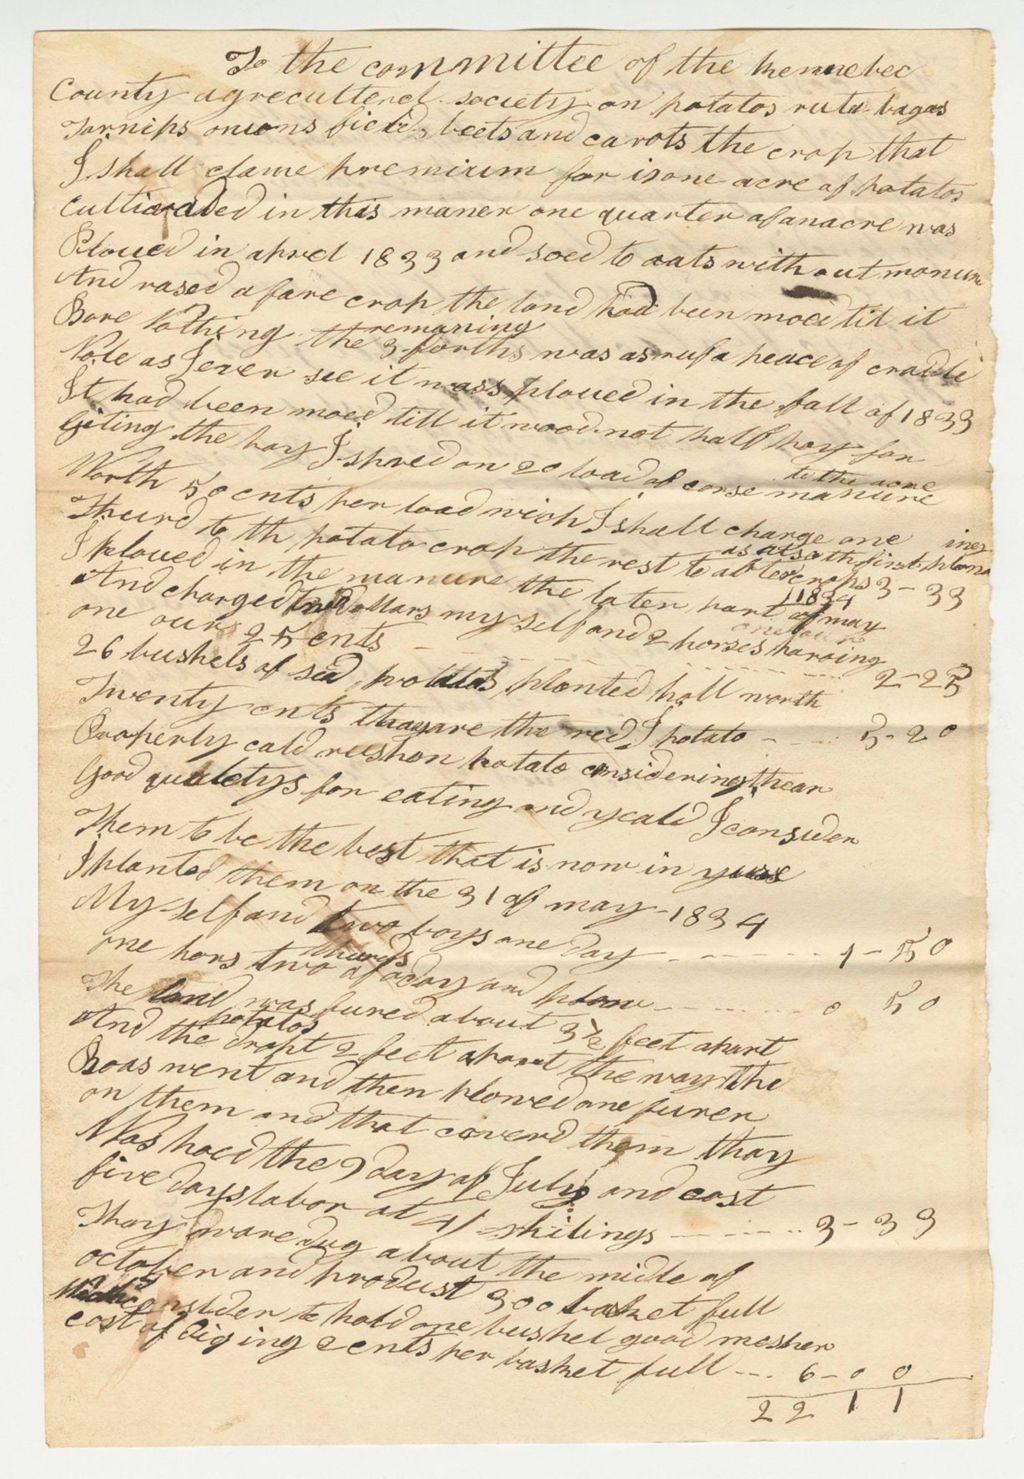 To the committee of the Kennebec
County agrecultend society on potatos ruta bagas
Tarnips onions field beets and carots the crop that
I shall clame premium for is one acre of potatos
Cultivaded in this maner one quarter of an acre was
Ploued in aprel 1833 and soed to oats without manure
And rased a fare crop the land had been moed til it
Bore Nothing the remaning 3 forths was as ruf a peace of cradle
Nole as I ever see it was ploued in the fall of 1833
It had been moed till it wood not half pay for
Giting the hay I spred on 20 load of corse manure to the acre
Worth 50 cents per load wich I shall charge one
Theurd to th potato crop the rest to after crops 3-33
as also the first plowing
I ploued in the manure the laten part of may 1834
And charged two dollars my self and 2 horses haroing
one our 25 cents 2-25
26 bushels of sead potatos planted holl worth
Twenty cents thay are the red potato 5-20
Properly cald reshon potato considering thear
Good qualetys for eating and yeald I consider
Them to be the best that is now in yuse
I planted them on the 31 of may 1834
My self and two boys one day 1-50
one hors two thurds of a day and plow 0 50
The land was fured about 3 1/2 feet apart
And the potatos dropt 2 feet apart the way the
Roas went and then plowed one furer
on them and that coverd them thay
Was hoed the 9 day of July and cost
five days labor at 4/ shilings 3-33
Thay ware dug about the midle of
october and produst 300 basket full
Wich I consider to hold one bushel good mesher
cost of diging 2 cents per basket full 6-00
22 11